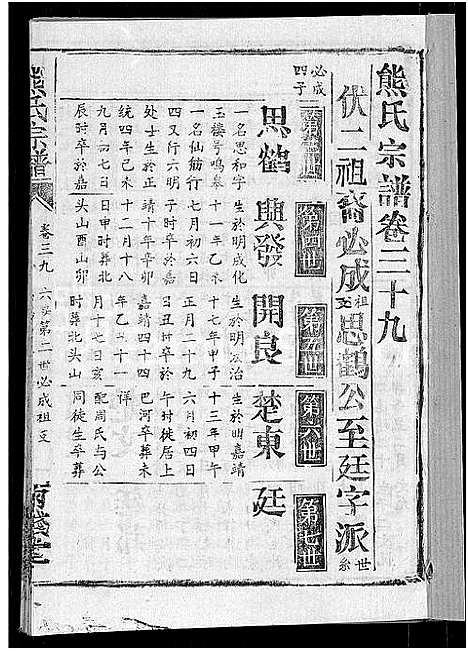 熊氏宗譜卷三十九
伏二祖裔必成祖支思鶴公至廷字派世系
必成四子
第三世
第四世
第五世
第六世
第七世
思鶴
興發
開良
楚東
廷
一名思和字
玉樓号鳴皋
一名仙舫行
四又行六明
处士生於正
統四年己未
九月初七日
辰时卒於嘉
生於明成化
十一年乙未
七月初六日
子时卒於嘉
靖十年辛卯
十二月十八
日申时葬北
头山酉山卯
生於明弘治
十七年甲子
正月二十九
日丑时卒於
嘉靖四十四
年乙丑十一
月十七日亥
时葬北头山
生於明嘉靖
十三年甲午
六月初四日
午时徙居上
巴河卒葬未
详
配周氏与公
同徙生卒葬
熊氏宗譜
卷三九
六安第二世必成祖支